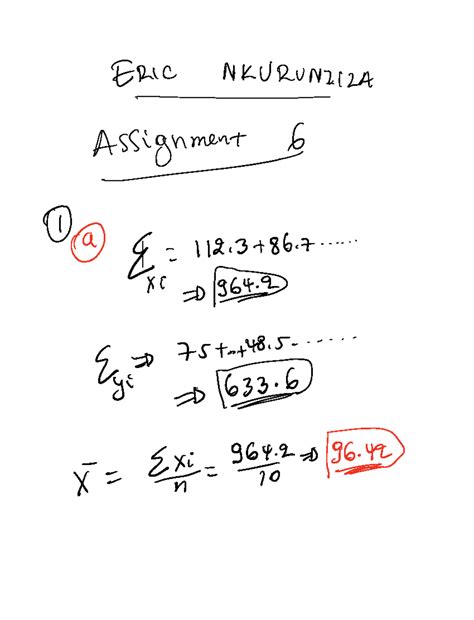 ERIC NKURUNZIZA
Assignment 6
① ⓐ
Σxi = 112.3+86.7......
⇒ 964.2
Σyi ⇒ 75+...+48.5.......
⇒ 633.6
x̄ = Σxi/n = 964.2/10 ⇒ 96.42